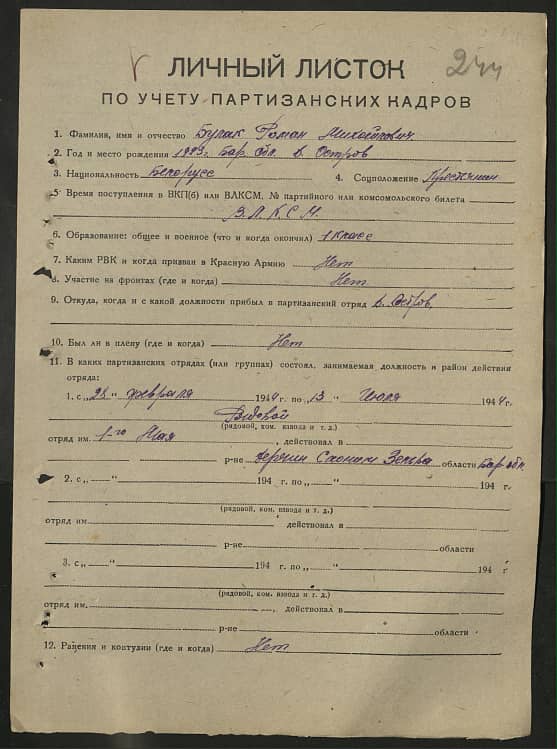 244
ЛИЧНЫЙ ЛИСТОК
ПО УЧЕТУ ПАРТИЗАНСКИХ КАДРОВ
1. Фамилия, имя и отчество Булак Роман Михайлович
2. Год и место рождения 1923г. Бар. обл. д. Остров
3. Национальность Белорусс 4. Соцположение Крестьянин
5. Время поступления в ВКП(б) или ВЛКСМ, № партийного или комсомольского билета
В.Л.К.С.М.
6. Образование: общее и военное (что и когда окончил) 1 класс
7. Каким РВК и когда призван в Красную Армию Нет
8. Участие на фронтах (где и когда) Нет
9. Откуда, когда и с какой должности прибыл в партизанский отряд д. Остров.
10. Был ли в плену (где и когда) Нет
11. В каких партизанских отрядах (или группах) состоял, занимаемая должность и район действия
отряда:
1. с „ 28 “ февраля 1944 г. по „ 13 “ Июля 1944 г.
Рядовой
(рядовой, ком. взвода и т. д.)
отряд им. 1-го Мая, действовал в
р-не Слоним Зельва области Бар. обл.
2. с „ “ 194 г. по „ “ 194 г.
(рядовой, ком. взвода и т. д.)
отряд им. действовал в
р-не области
3. с „ “ 194 г. по „ “ 194 г
(рядовой, ком. взвода и т. д.)
отряд им. , действовал в
р-не области
12. Ранения и контузии (где и когда) Нет